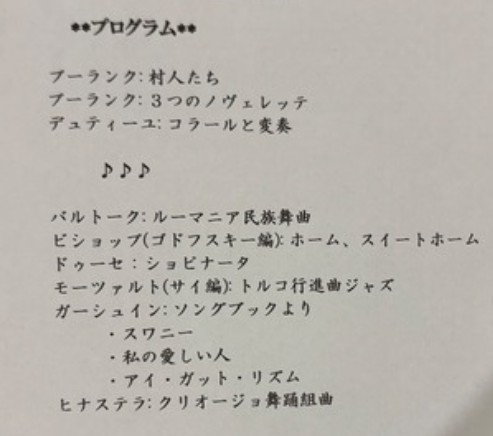 **プログラム**
プーランク: 村人たち
プーランク: 3つのノヴェレッテ
デュティーユ: コラールと変奏
♪♪♪
バルトーク: ルーマニア民族舞曲
ビショップ(ゴドフスキー編): ホーム、スイートホーム
ドゥーセ : ショピナータ
モーツァルト(サイ編): トルコ行進曲ジャズ
ガーシュイン: ソングブックより
・スワニー
・私の愛しい人
・アイ・ガット・リズム
ヒナステラ: クリオージョ舞踊組曲